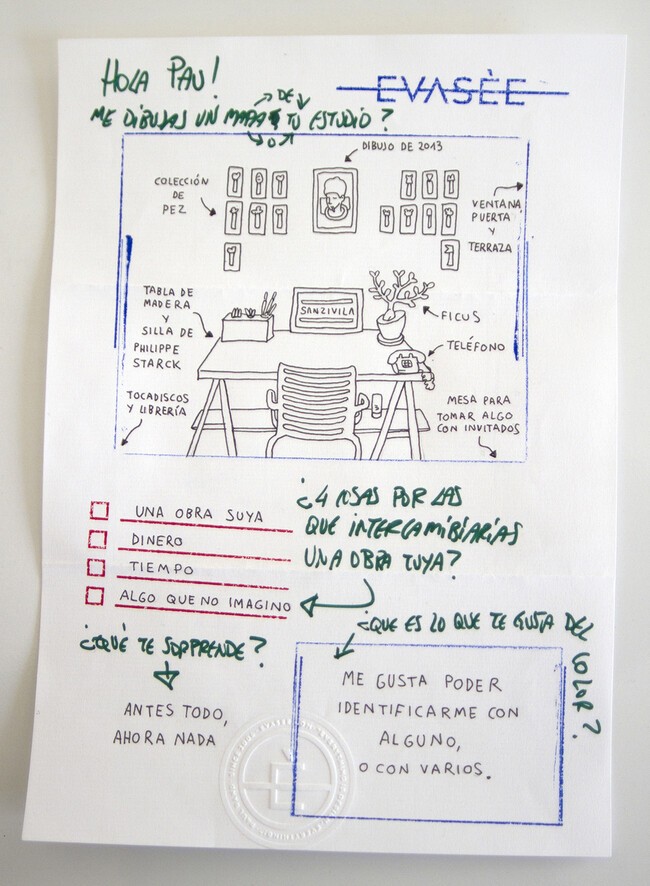 HOLA PAU!
EVASÈE
ME DIBUJAS UN MAPA DE TU ESTUDIO?
O
DIBUJO DE 2013
COLECCIÓN
DE
PEZ
VENTANA,
PUERTA
Y
TERRAZA
TABLA DE
MADERA
Y
SILLA DE
PHILIPPE
STARCK
SANZIVILA
FICUS
TELÉFONO
TOCADISCOS
Y LIBRERÍA
MESA PARA
TOMAR ALGO
CON INVITADOS
¿4 COSAS POR LAS
QUE INTERCAMBIARIAS
UNA OBRA TUYA?
UNA OBRA SUYA
DINERO
TIEMPO
ALGO QUE NO IMAGINO
¿QUÉ TE SORPRENDE?
ANTES TODO,
AHORA NADA
¿QUE ES LO QUE TE GUSTA DEL COLOR?
ME GUSTA PODER
IDENTIFICARME CON
ALGUNO,
O CON VARIOS.
È